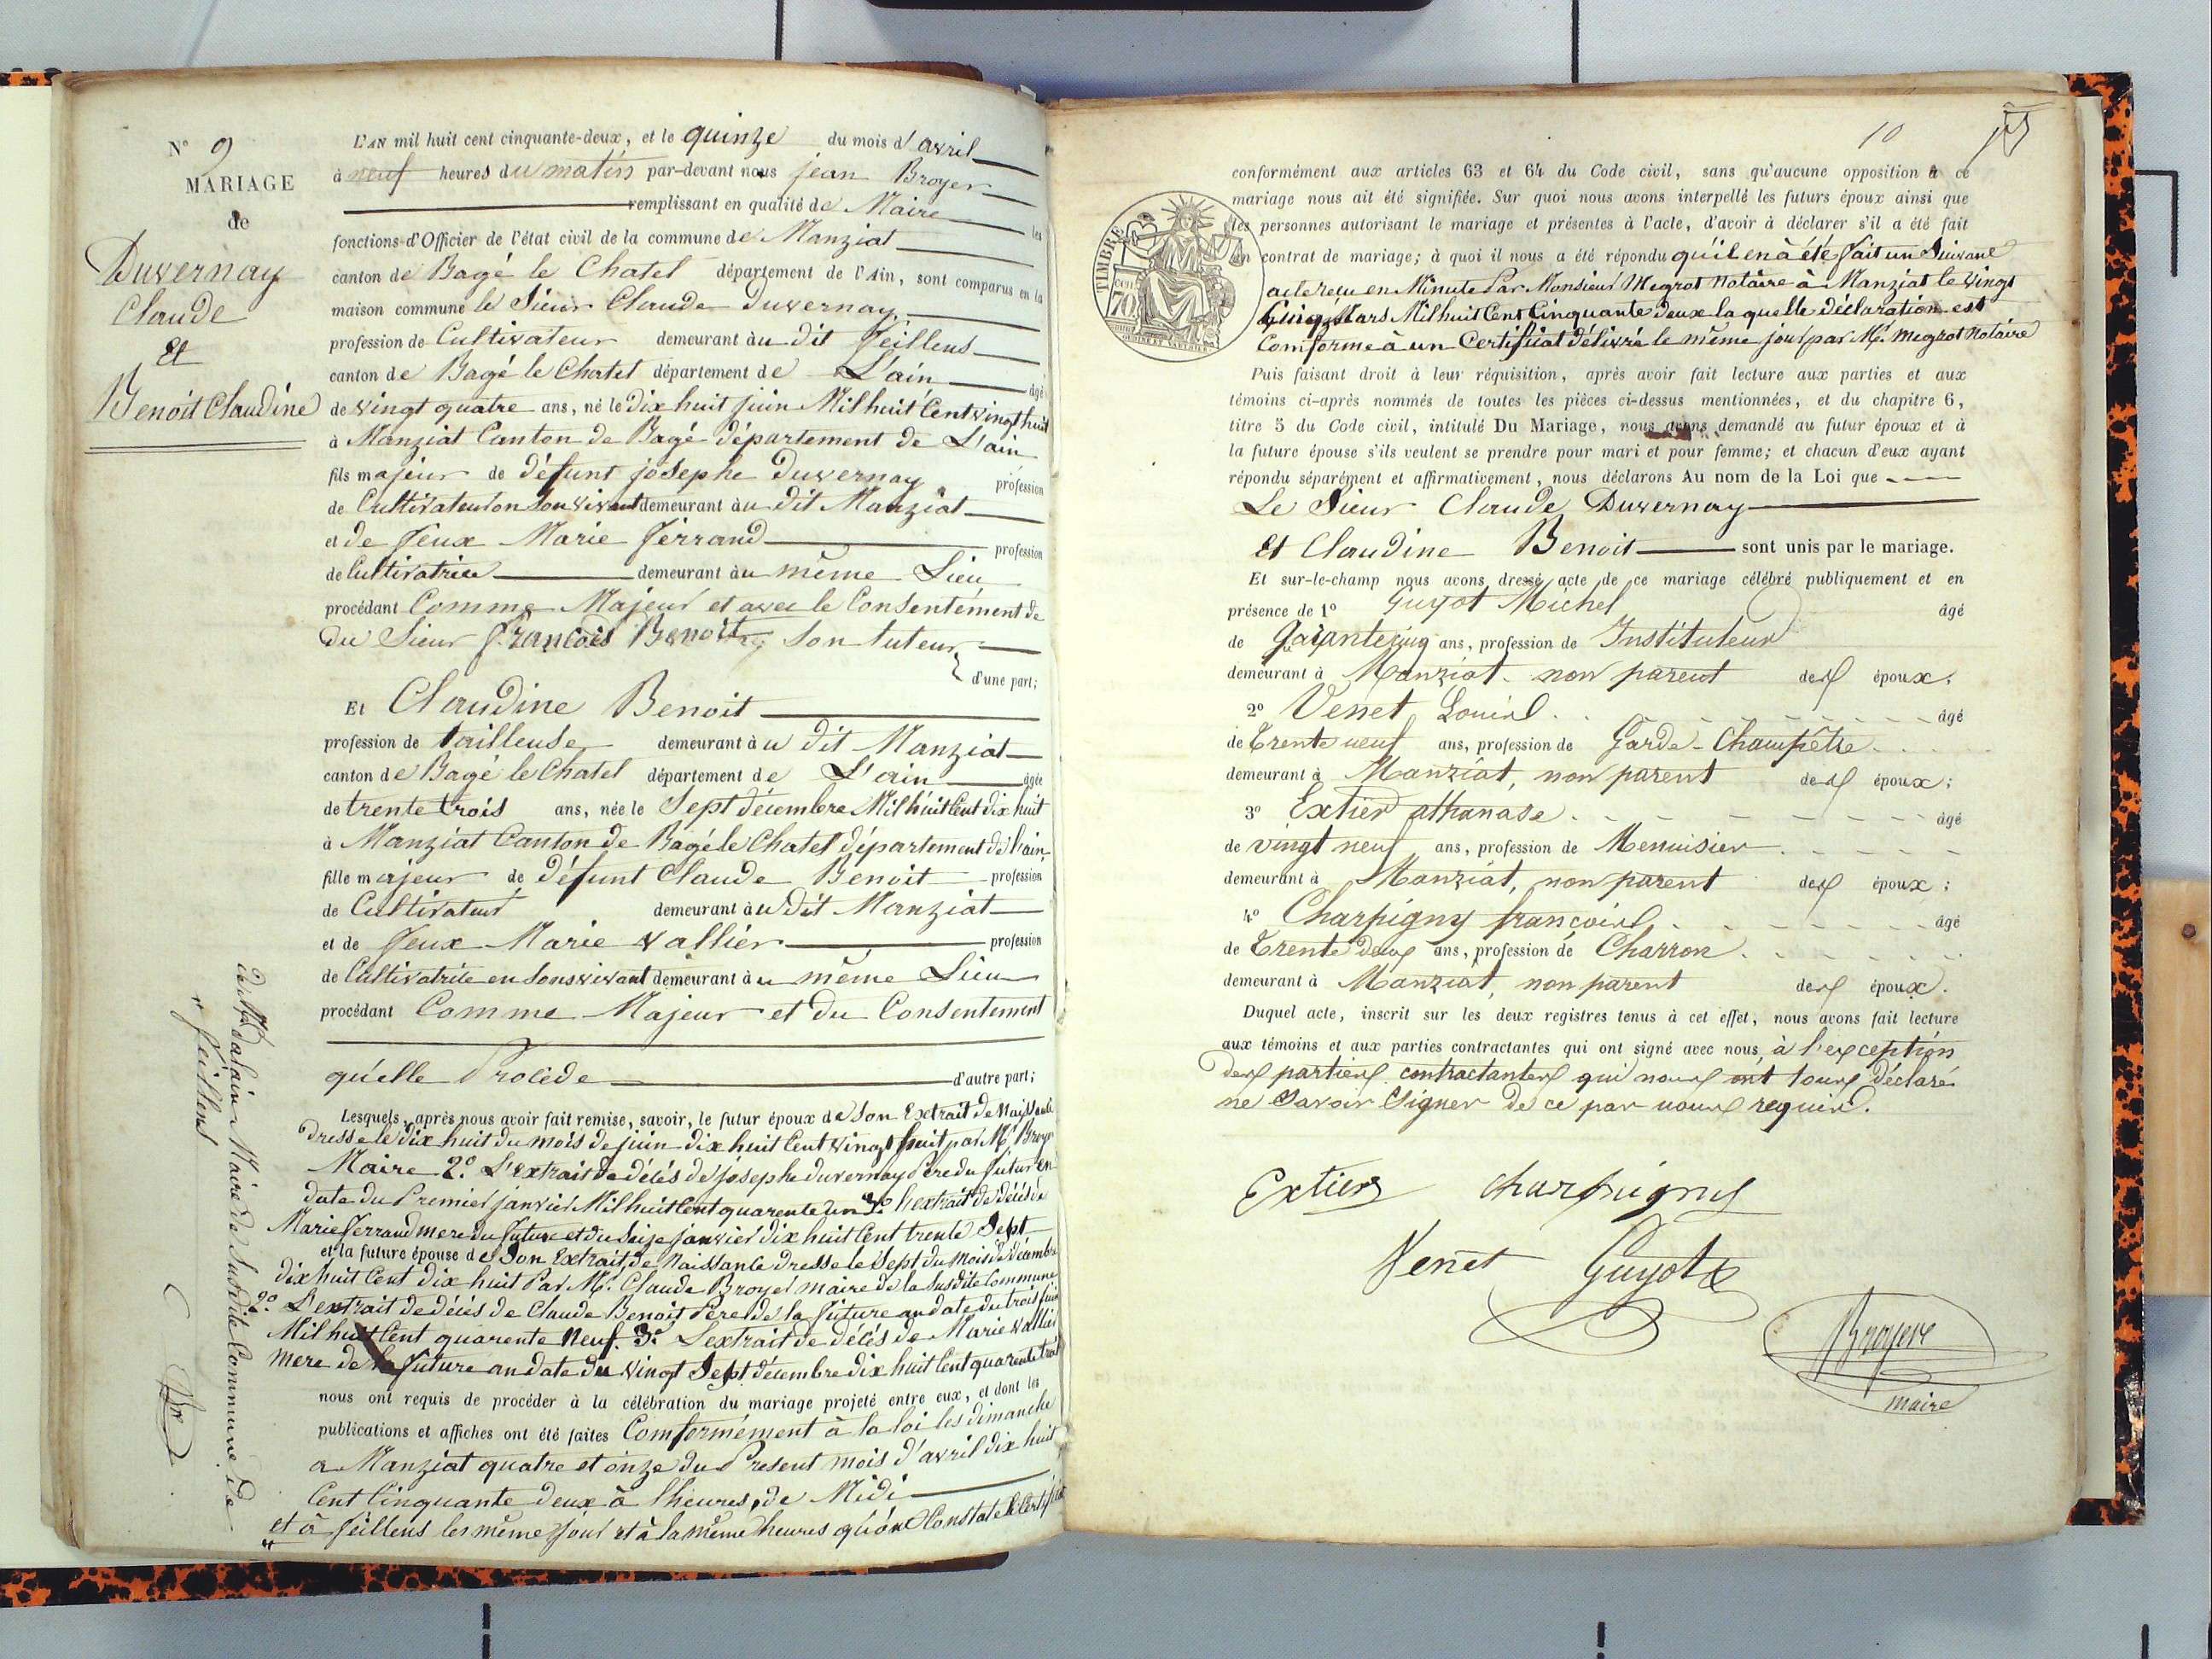 N° 9
MARIAGE
de
Duvernay
Claude
Et
Benoit Claudine
L'AN mil huit cent cinquante-deux, et le quinze du mois d'avril
à neuf heures du matin par-devant nous jean Broyer
remplissant en qualité de Maire les
fonctions d'Officier de l'état civil de la commune de Manziat
canton de Bagé le Chatel département de l'Ain, sont comparus en la
maison commune le Sieur Claude Duvernay
profession de Cultivateur demeurant àu dit feillens
canton de Bagé le Chatel département de L'ain âgé
de vingt quatre ans, né le dix huit juin Mil huit Cent vingt huit
à Manziat Canton de Bagé département de L'ain
fils majeur de défunt josephe Duvernay profession
de Cultivateur en son vivant demeurant àu dit Manziat
et de feux Marie ferrand profession
de Cultivatrice demeurant àu même Lieu
procédant Comme Majeur et avec le Consentement de
du Sieur francois Benoit son tuteur
d'une part;
Et Claudine Benoit
profession de tailleuse demeurant àu dit Manziat
canton de Bagé le Chatel département de L'ain âgée
de trente trois ans, née le Sept décembre Mil huit Cent dix huit
à Manziat Canton de Bagé le Chatel département de l'ain,
fille majeur de défunt Claude Benoit profession
de Cultivateur demeurant àu dit Manziat
et de feux Marie vallier profession
de Cultivatrice en sons vivant demeurant àu même Lieu
procédant Comme Majeur et du Consentement
qu'elle Procède d'autre part;
Lesquels, après nous avoir fait remise, savoir, le futur époux de Son Extrait de Naissance
dresse le dix huit du mois de juin dix huit Cent vingt huit par Mr. Broyer
Maire 2° L'extrait de décés de josephe duvernay Pere du futur en
date du Premier janvier Mil huit Cent quarente un 3° l'extrait de décés de
Marie ferrand mere du futur et du Seize janvier dix huit Cent trente Sept
et la future épouse de Son Extrait de Naissance dresse le Sept du mois de décembre
dix huit Cent dix huit Par Mr. Claude Broyer maire de la Susdite Commune
2° L'extrait de décés de Claude Benoit Pere de la future an date du trois juin
Mil huit Cent quarente Neuf. 3° L'extrait de décés de Marie vallier
mere de la future an date du vingt Sept décembre dix huit Cent quarente trois
nous ont requis de procéder à la célébration du mariage projeté entre eux, et dont les
publications et affiches ont été faites Comformément à la loi les dimanche
a Manziat quatre et onze du Present mois d'avril dix huit
Cent Cinquante deux à l'heures de Midi
et à feillens les même jour et à la même heures qu'on Constate le Certificat
Maire de Susdite Commune de
feillens
10
conformément aux articles 63 et 64 du Code civil, sans qu'aucune opposition à ce
mariage nous ait été signifiée. Sur quoi nous avons interpellé les futurs époux ainsi que
les personnes autorisant le mariage et présentes à l'acte, d'avoir à déclarer s'il a été fait
un contrat de mariage; à quoi il nous a été répondu qu'il en à été fait un Suivant
acte reçu en Minute Par Monsieur Megrot Notaire à Manziat le vingt
Cinq Mars Mil huit Cent Cinquante deux la quelle déclaration est
Comforme à un Certificat délivré le même jour par Me. Megrot Notaire
TIMBRE
70
Puis faisant droit à leur réquisition, après avoir fait lecture aux parties et aux
témoins ci-après nommés de toutes les pièces ci-dessus mentionnées, et du chapitre 6,
titre 5 du Code civil, intitulé Du Mariage, nous avons demandé au futur époux et à
la future épouse s'ils veulent se prendre pour mari et pour femme; et chacun d'eux ayant
répondu séparément et affirmativement, nous déclarons Au nom de la Loi que
Le Sieur Claude Duvernay
Et Claudine Benoit sont unis par le mariage.
Et sur-le-champ nous avons dressé acte de ce mariage célébré publiquement et en
présence de 1° Guyot Michel âgé
de ans, profession de Instituteur
demeurant à Manziat. non parent des époux.
2° Venet Louis âgé
de Trente neuf ans, profession de Garde-Champêtre
demeurant à Manziat, non parent des époux;
3° Extier athanase âgé
de vingt neuf ans, profession de Menuisier
demeurant à Manziat, non parent des époux;
4° Charpigny francois âgé
de Trente deux ans, profession de Charron
demeurant à Manziat, non parent des époux.
Duquel acte, inscrit sur les deux registres tenus à cet effet, nous avons fait lecture
aux témoins et aux parties contractantes qui ont signé avec nous, à l'exception
des parties contractantes qui nous ont tous déclaré
ne Savoir Signer de ce par nous requis.
Extier Charpigny
Venet Guyot
Broyer
maire